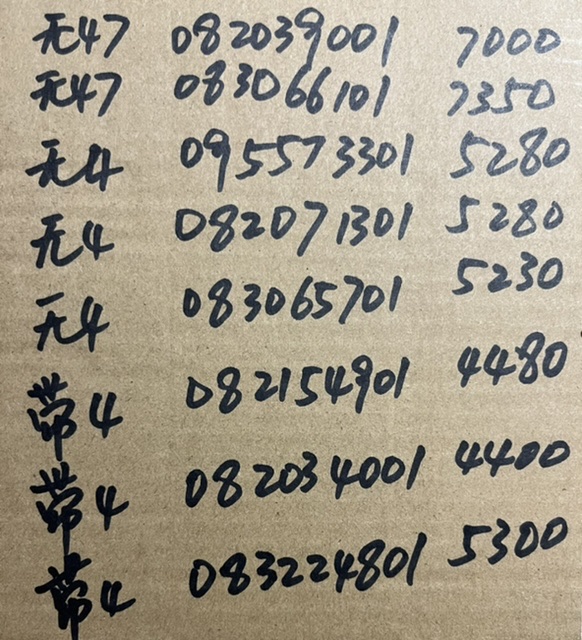 无47 082039001 7000
无47 083066101 7350
无4 095573301 5280
无4 082071301 5280
无4 083065701 5230
带4 082154901 4480
带4 082034001 4400
带4 083224801 5300